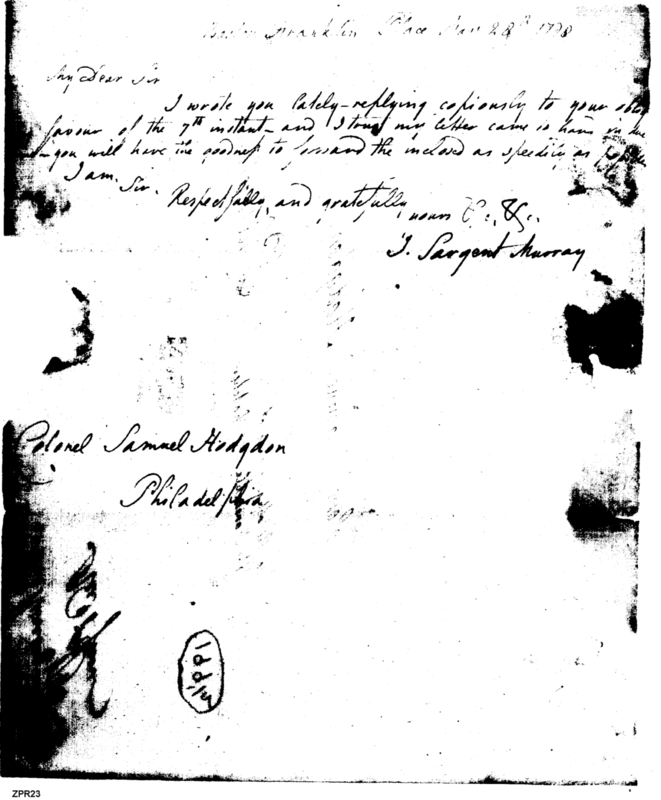 Franklin Place Jan 28th 1798
My Dear Sir
I wrote you lately—replying copiously to your
favour of the 7th instant—and I my letter came to hand in
—you will have the goodness to forward the inclosed as speedily as
I am, Sir,
Respectfully, and gratefully, yours &c. &c.
J. Sargent Murray
Colonel Samuel Hodgdon
Philadelphia
ZPR23